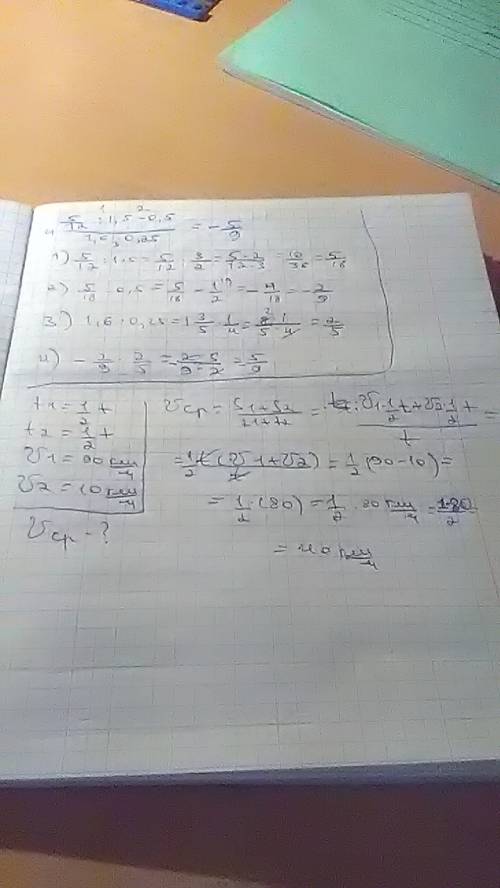 5/12 : 1,5 - 0,5 / 1,6 · 0,25 = - 5/9
1) 5/12 : 1,5 = 5/12 : 3/2 = 5·2/12·3 = 10/36 = 5/18
2) 5/18 - 0,5 = 5/18 - 1/2 = - 4/18 = - 2/9
3) 1,6 · 0,25 = 1 3/5 · 1/4 = 8·1/5·4 = 2/5
4) - 2/9 : 2/5 = - 2·5/9·2 = 5/9
t1 = 1/2 t
t2 = 1/2 t
V1 = 90 км/ч
V2 = 10 км/ч
Vср - ?
Vср = S1+S2/t1+t2 = V1·1/2 t+V2·1/2 t / t =
= 1/2 t (V1+V2) / t = 1/2 (90-10) =
= 1/2 · (80) = 1/2 · 80 км/ч = 1·80/2
= 40 км/ч